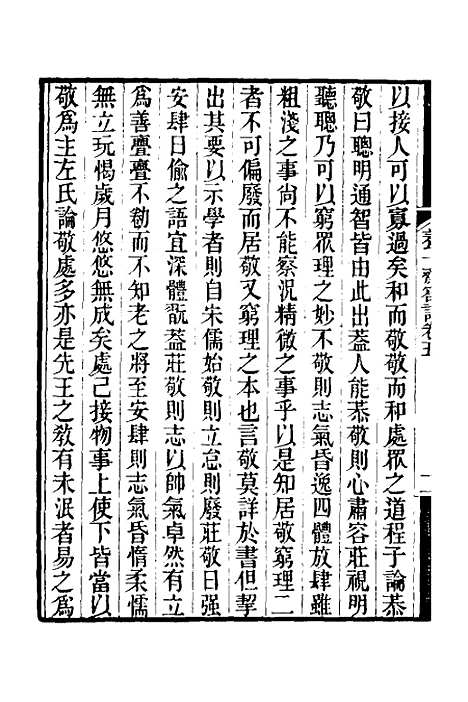 以接人可以寡過矣和而敬敬而和處眾之道程子論恭
敬曰聰明通智皆由此出葢人能恭敬則心肅容莊視明
聽聰乃可以窮眾理之妙不敬則志氣昏逸四體放肆雖
粗淺之事尚不能察況精微之事乎以是知居敬窮理二
者不可偏廢而居敬又窮理之本也言敬莫詳於書但挈
出其要以示學者則自朱儒始敬則立怠則廢莊敬日强
安肆日偷之語宜深體翫葢莊敬則志以帥氣卓然有立
爲善亹亹不勌而不知老之將至安肆則志氣昏惰柔懦
無立玩愒歲月悠悠無成矣處己接物事上使下皆當以
敬爲主左氏論敬處多亦是先王之教有未泯者易之爲
養一齋劄記卷五
二